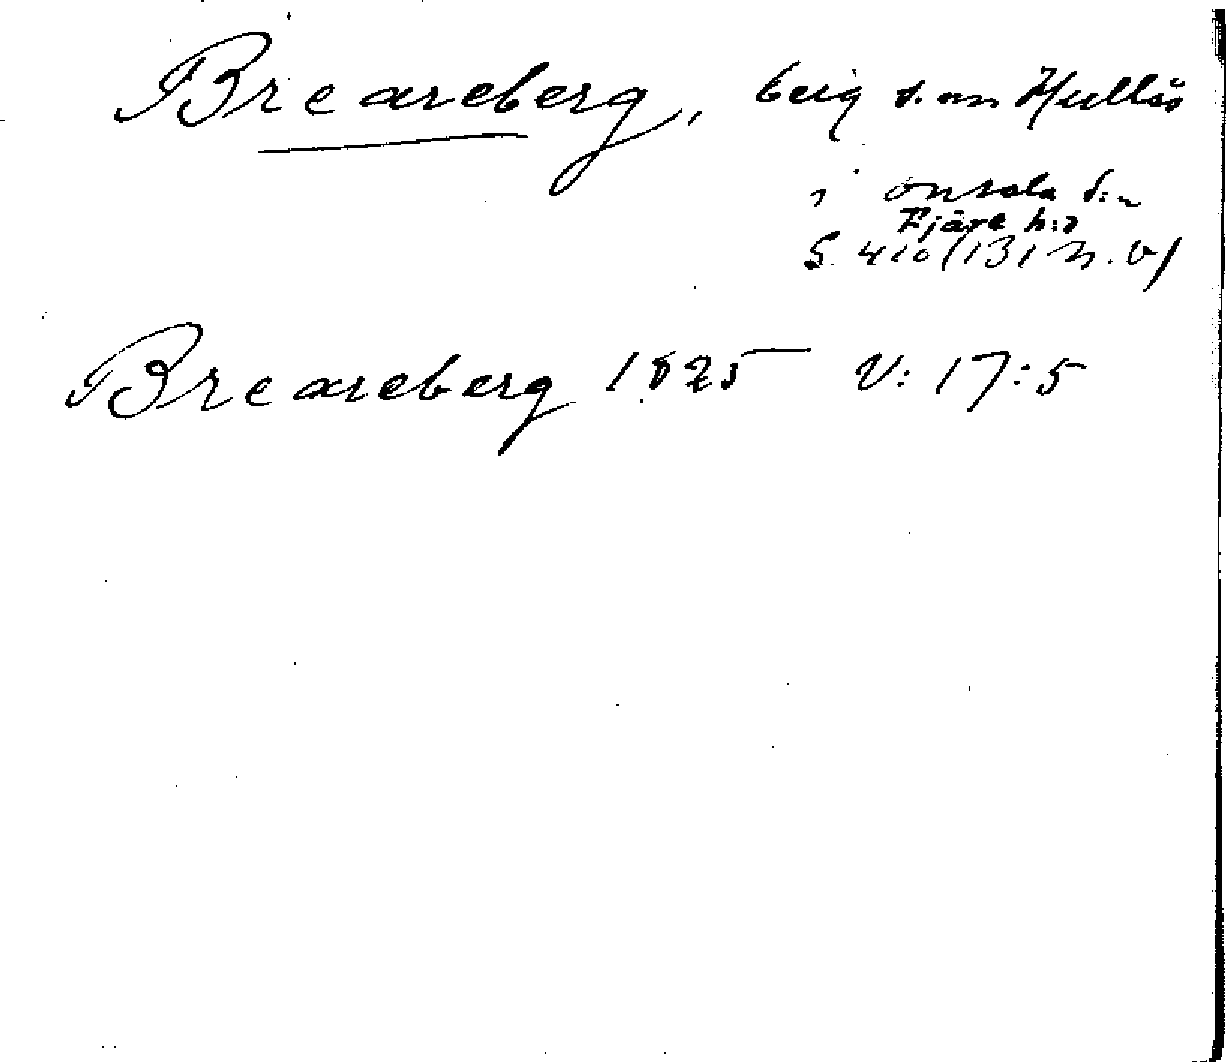 Breareberg, berg s. om Hullås
i Onsala s:n
Fjäre h:d
S. 410 (131 N.V)
Breareberg 1825 V: 17:5